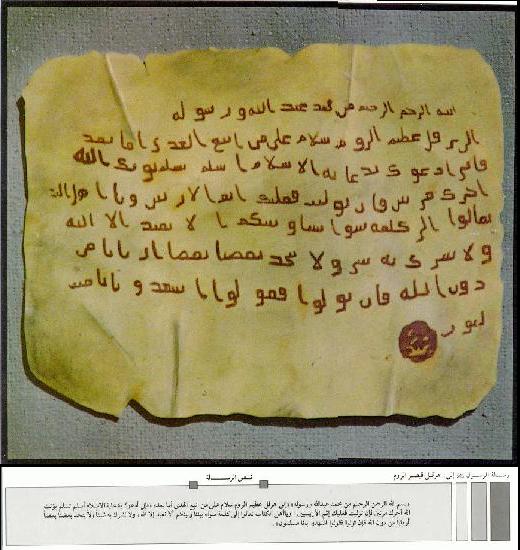 بسم الله الرحمن الرحيم من محمد عبد الله ورسوله
الى هرقل عظيم الروم سلام على من اتبع الهدى اما بعد
فانى ادعوك بدعاية الاسلام اسلم تسلم يوتك الله
اجرك مرتين فان توليت فعليك اثم الاريسيين ويا اهل
تعالوا الى كلمة سوا بيننا وبينكم الا نعبد الا الله
ولا نشرك به شيا ولا يتخذ بعضنا بعضا اربابا من
دون الله فان تولوا فقولوا اشهدوا بانا
رسالة الرسول ﷺ إلى: هرقل قيصر الروم
نص الرسالة
بسم الله الرحمن الرحيم من محمد عبدالله ورسوله إلى هرقل عظيم الروم سلام على من اتبع الهدى أما بعد، فإني أدعوك بدعاية الاسلام أسلم تسلم يؤتك
الله أجرك مرتين، فإن توليت فعليك إثم الأريسيين، ويا أهل الكتاب تعالوا إلى كلمة سواء بيننا وبينكم ألا نعبد إلا الله، ولا نشرك به شيئا ولا يتخذ بعضنا بعضاً
أربابا من دون الله فإن تولوا فقولوا اشهدوا بأنا مسلمون.